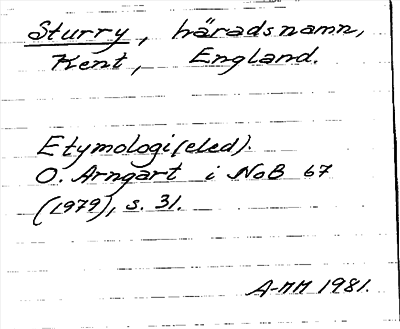 Sturry, häradsnamn,
Kent, England.
Etymologi(eled).
O. Arngart i NoB 67
(1979), s. 31.
A-MM 1981.